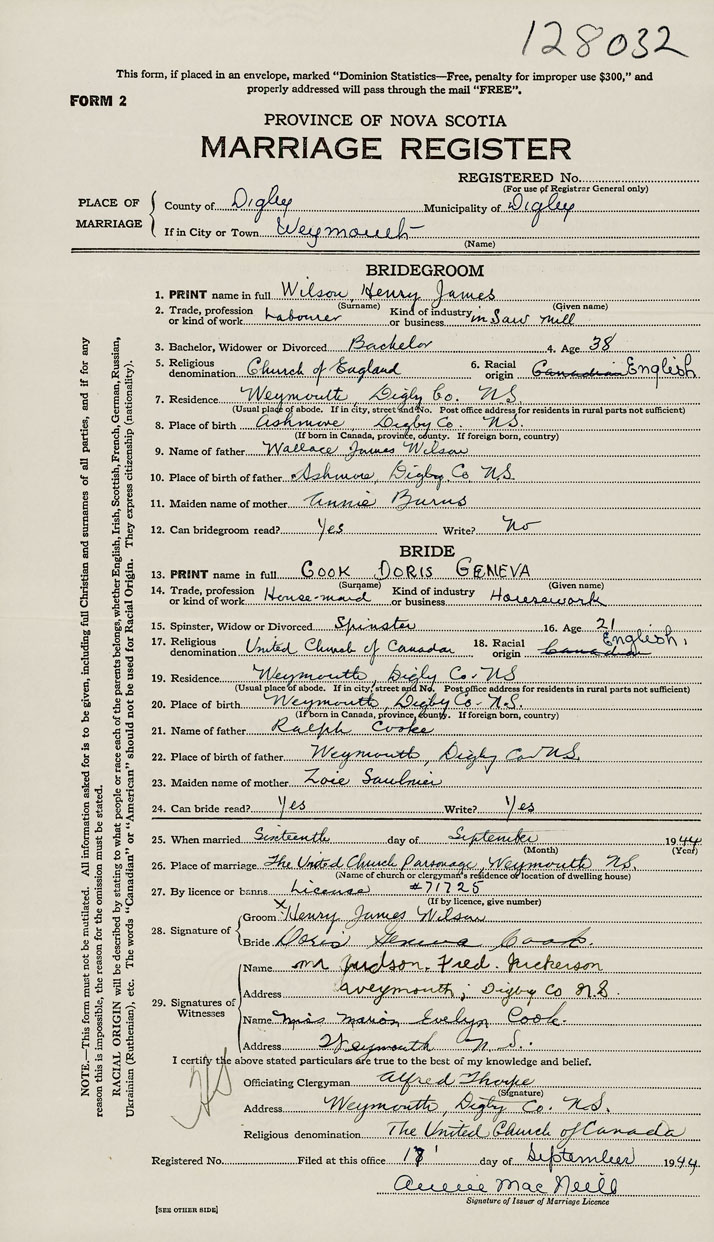 128032
This form, if placed in an envelope, marked "Dominion Statistics—Free, penalty for improper use $300," and
properly addressed will pass through the mail "FREE".
FORM 2
PROVINCE OF NOVA SCOTIA
MARRIAGE REGISTER
REGISTERED No.
(For use of Registrar General only)
PLACE OF MARRIAGE
County of Digby Municipality of Digby
If in City or Town Weymouth
(Name)
BRIDEGROOM
1. PRINT name in full Wilson, Henry James
(Surname) (Given name)
2. Trade, profession or kind of work Labourer Kind of industry or business in Saw Mill
3. Bachelor, Widower or Divorced Bachelor 4. Age 38
5. Religious denomination Church of England 6. Racial origin Canadian English
7. Residence Weymouth, Digby Co. N.S.
(Usual place of abode. If in city, street and No. Post office address for residents in rural parts not sufficient)
8. Place of birth Ashmore, Digby Co. N.S.
(If born in Canada, province, county. If foreign born, country)
9. Name of father Wallace James Wilson
10. Place of birth of father Ashmore, Digby Co N.S.
11. Maiden name of mother Annie Burns
12. Can bridegroom read? Yes Write? No
BRIDE
13. PRINT name in full COOK DORIS GENEVA
(Surname) (Given name)
14. Trade, profession or kind of work House-maid Kind of industry or business Housework
15. Spinster, Widow or Divorced Spinster 16. Age 21
17. Religious denomination United Church of Canada 18. Racial origin Canadian English
19. Residence Weymouth, Digby Co. N.S
(Usual place of abode. If in city, street and No. Post office address for residents in rural parts not sufficient)
20. Place of birth Weymouth, Digby Co. N.S.
(If born in Canada, province, county. If foreign born, country)
21. Name of father Ralph Cooke
22. Place of birth of father Weymouth, Digby Co N.S.
23. Maiden name of mother Zoie Saulnier
24. Can bride read? Yes Write? Yes
25. When married Sixteenth day of September 1944
(Month) (Year)
26. Place of marriage The United Church Parsonage, Weymouth N.S.
(Name of church or clergyman's residence or location of dwelling house)
27. By licence or banns License #71725
(If by licence, give number)
28. Signature of
Groom X Henry James Wilson
Bride Doris Geneva Cook.
29. Signatures of Witnesses
Name Mr Judson. Fred. Nickerson
Address Weymouth, Digby Co N.S.
Name Miss Marion Evelyn Cook.
Address Weymouth N.S.
I certify the above stated particulars are true to the best of my knowledge and belief.
Officiating Clergyman Alfred Thorpe
(Signature)
Address Weymouth, Digby Co. N.S.
Religious denomination The United Church of Canada
Registered No. Filed at this office 17 day of September 1944
Annie MacNeill
Signature of Issuer of Marriage Licence
[SEE OTHER SIDE]
NOTE.—This form must not be mutilated. All information asked for is to be given, including full Christian and surnames of all parties, and if for any
reason this is impossible, the reason for the omission must be stated.
RACIAL ORIGIN will be described by stating to what people or race each of the parents belongs, whether English, Irish, Scottish, French, German, Russian,
Ukrainian (Ruthenian), etc. The words "Canadian" or "American" should not be used for Racial Origin. They express citizenship (nationality).